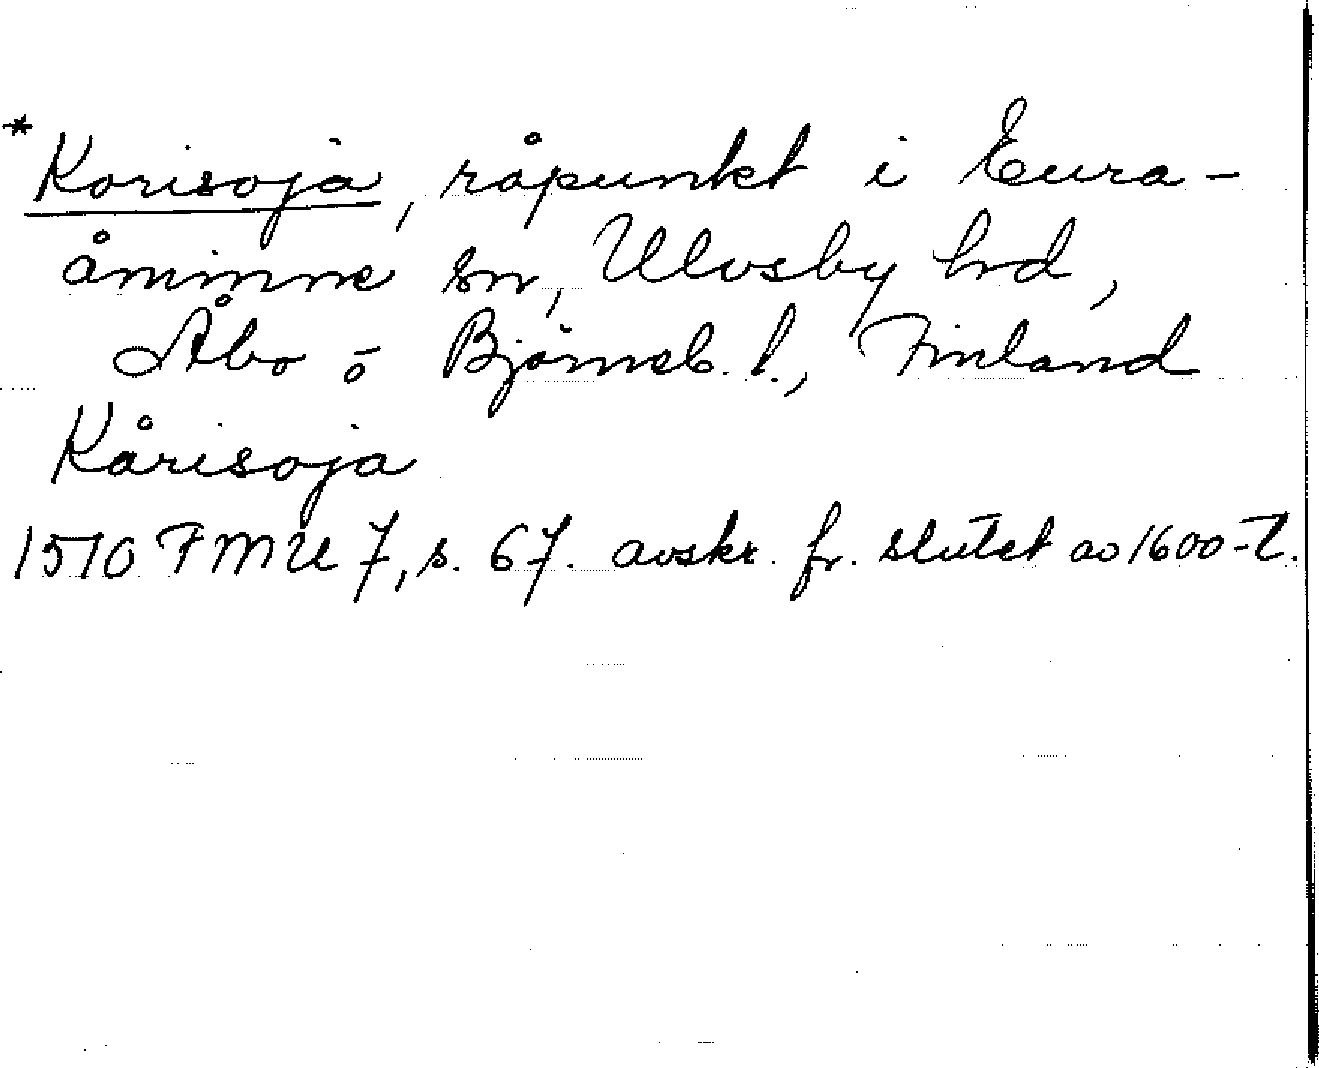 *Korisoja, råpunkt i Eura-
åminne sn, Ulvsby hrd,
Åbo o Björneb. l., Finland
Kårisoja
1570 FMU 7, s. 67. avskr. fr. slutet av 1600-t.